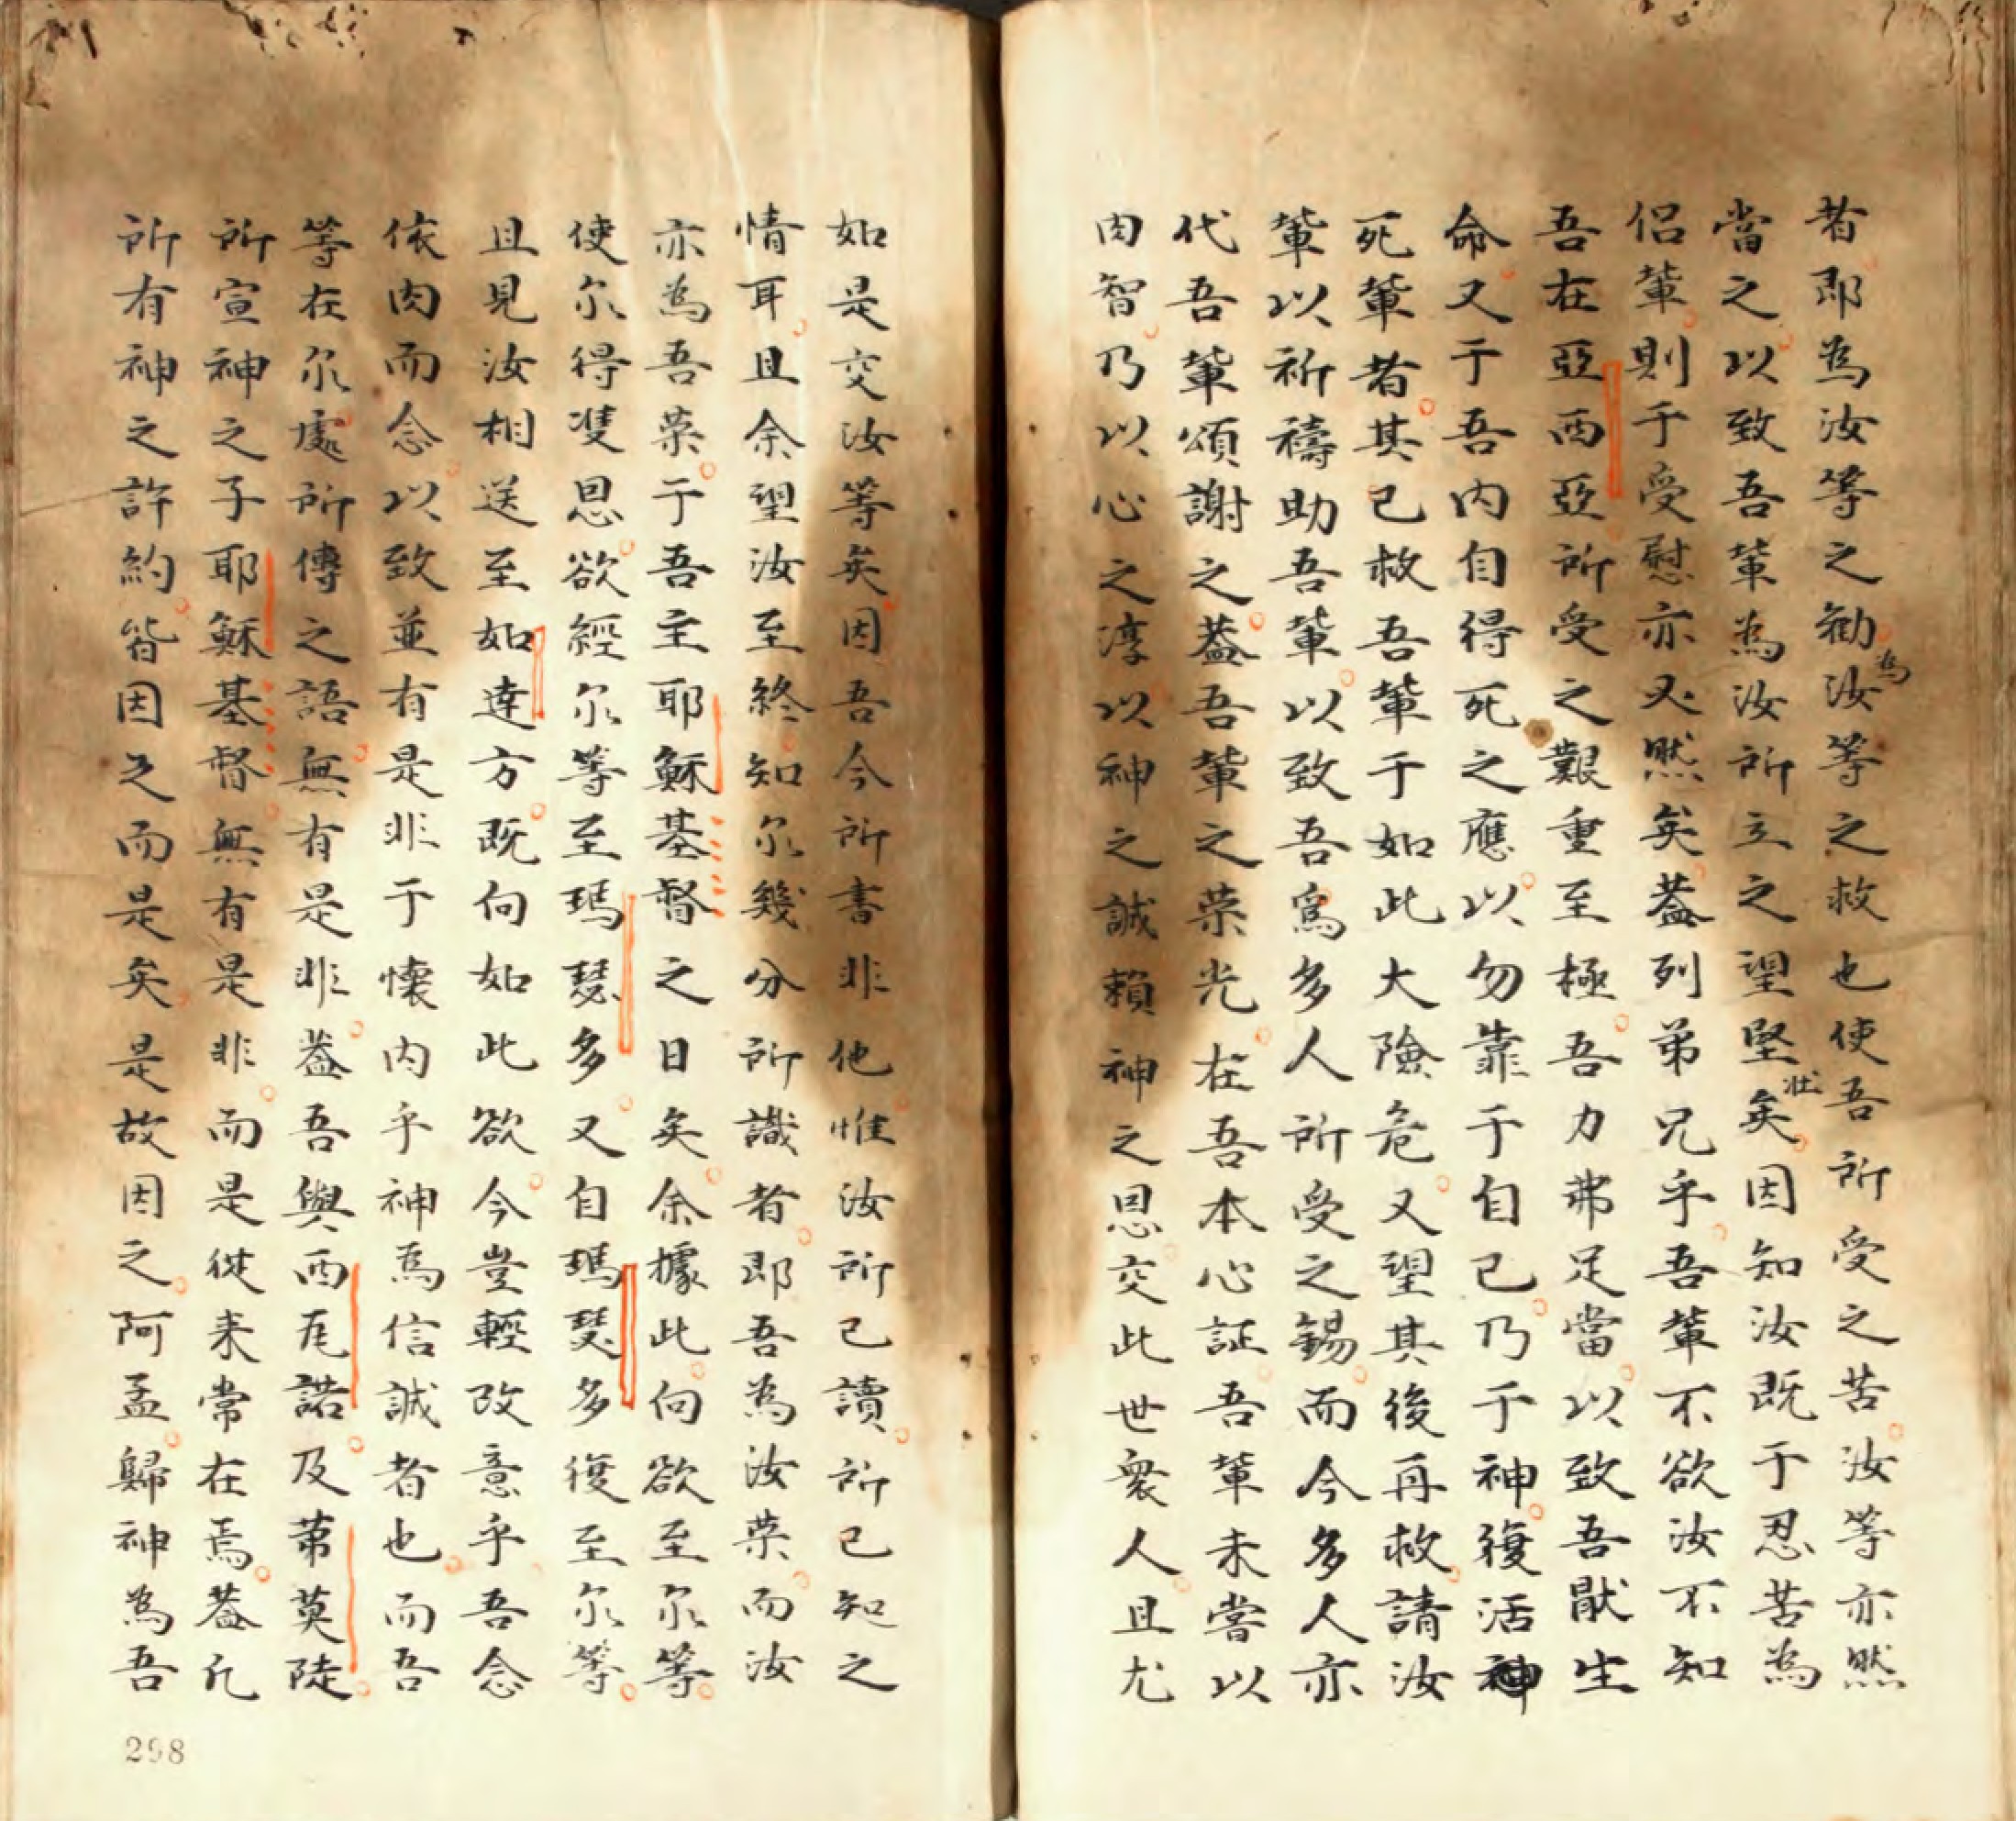 者即為汝等之勸為汝等之救也使吾所受之苦汝等亦然
當之以致吾輩為汝所立之望堅壯矣因知汝既于忍苦為
侶輩則于受慰亦必然矣蓋列弟兄乎吾輩不欲汝不知
吾在亞西亞所受之艱重至極吾力弗足當以致吾猒生
命又于吾內自得死之應以勿靠于自己乃于神復活神
死輩者其已救吾輩于如此大險危又望其後再救請汝
輩以祈禱助吾輩以致吾爲多人所受之錫而今多人亦
代吾輩頌謝之蓋吾輩之榮光在吾本心証吾輩未嘗以
肉智乃以心之淳以神之誠賴神之恩交此世眾人且尤
如是交汝等矣因吾今所書非他惟汝所已讀所已知之
情耳且余望汝至終知尔幾分所識者即吾為汝榮而汝
亦為吾榮于吾主耶穌基督之日矣余據此向欲至尔等
使尔得雙恩欲經尔等至瑪瑟多又自瑪瑟多復至尔等
且見汝相送至如達方既向如此欲今豈輕改意乎吾念
依肉而念以致並有是非于懷內乎神為信誠者也而吾
等在尔處所傳之語無有是非蓋吾與西尾諾及第莫陡
所宣神之子耶穌基督無有是非而是從来常在焉蓋凢
所有神之許約皆因之而是矣是故因之阿孟歸神為吾
298